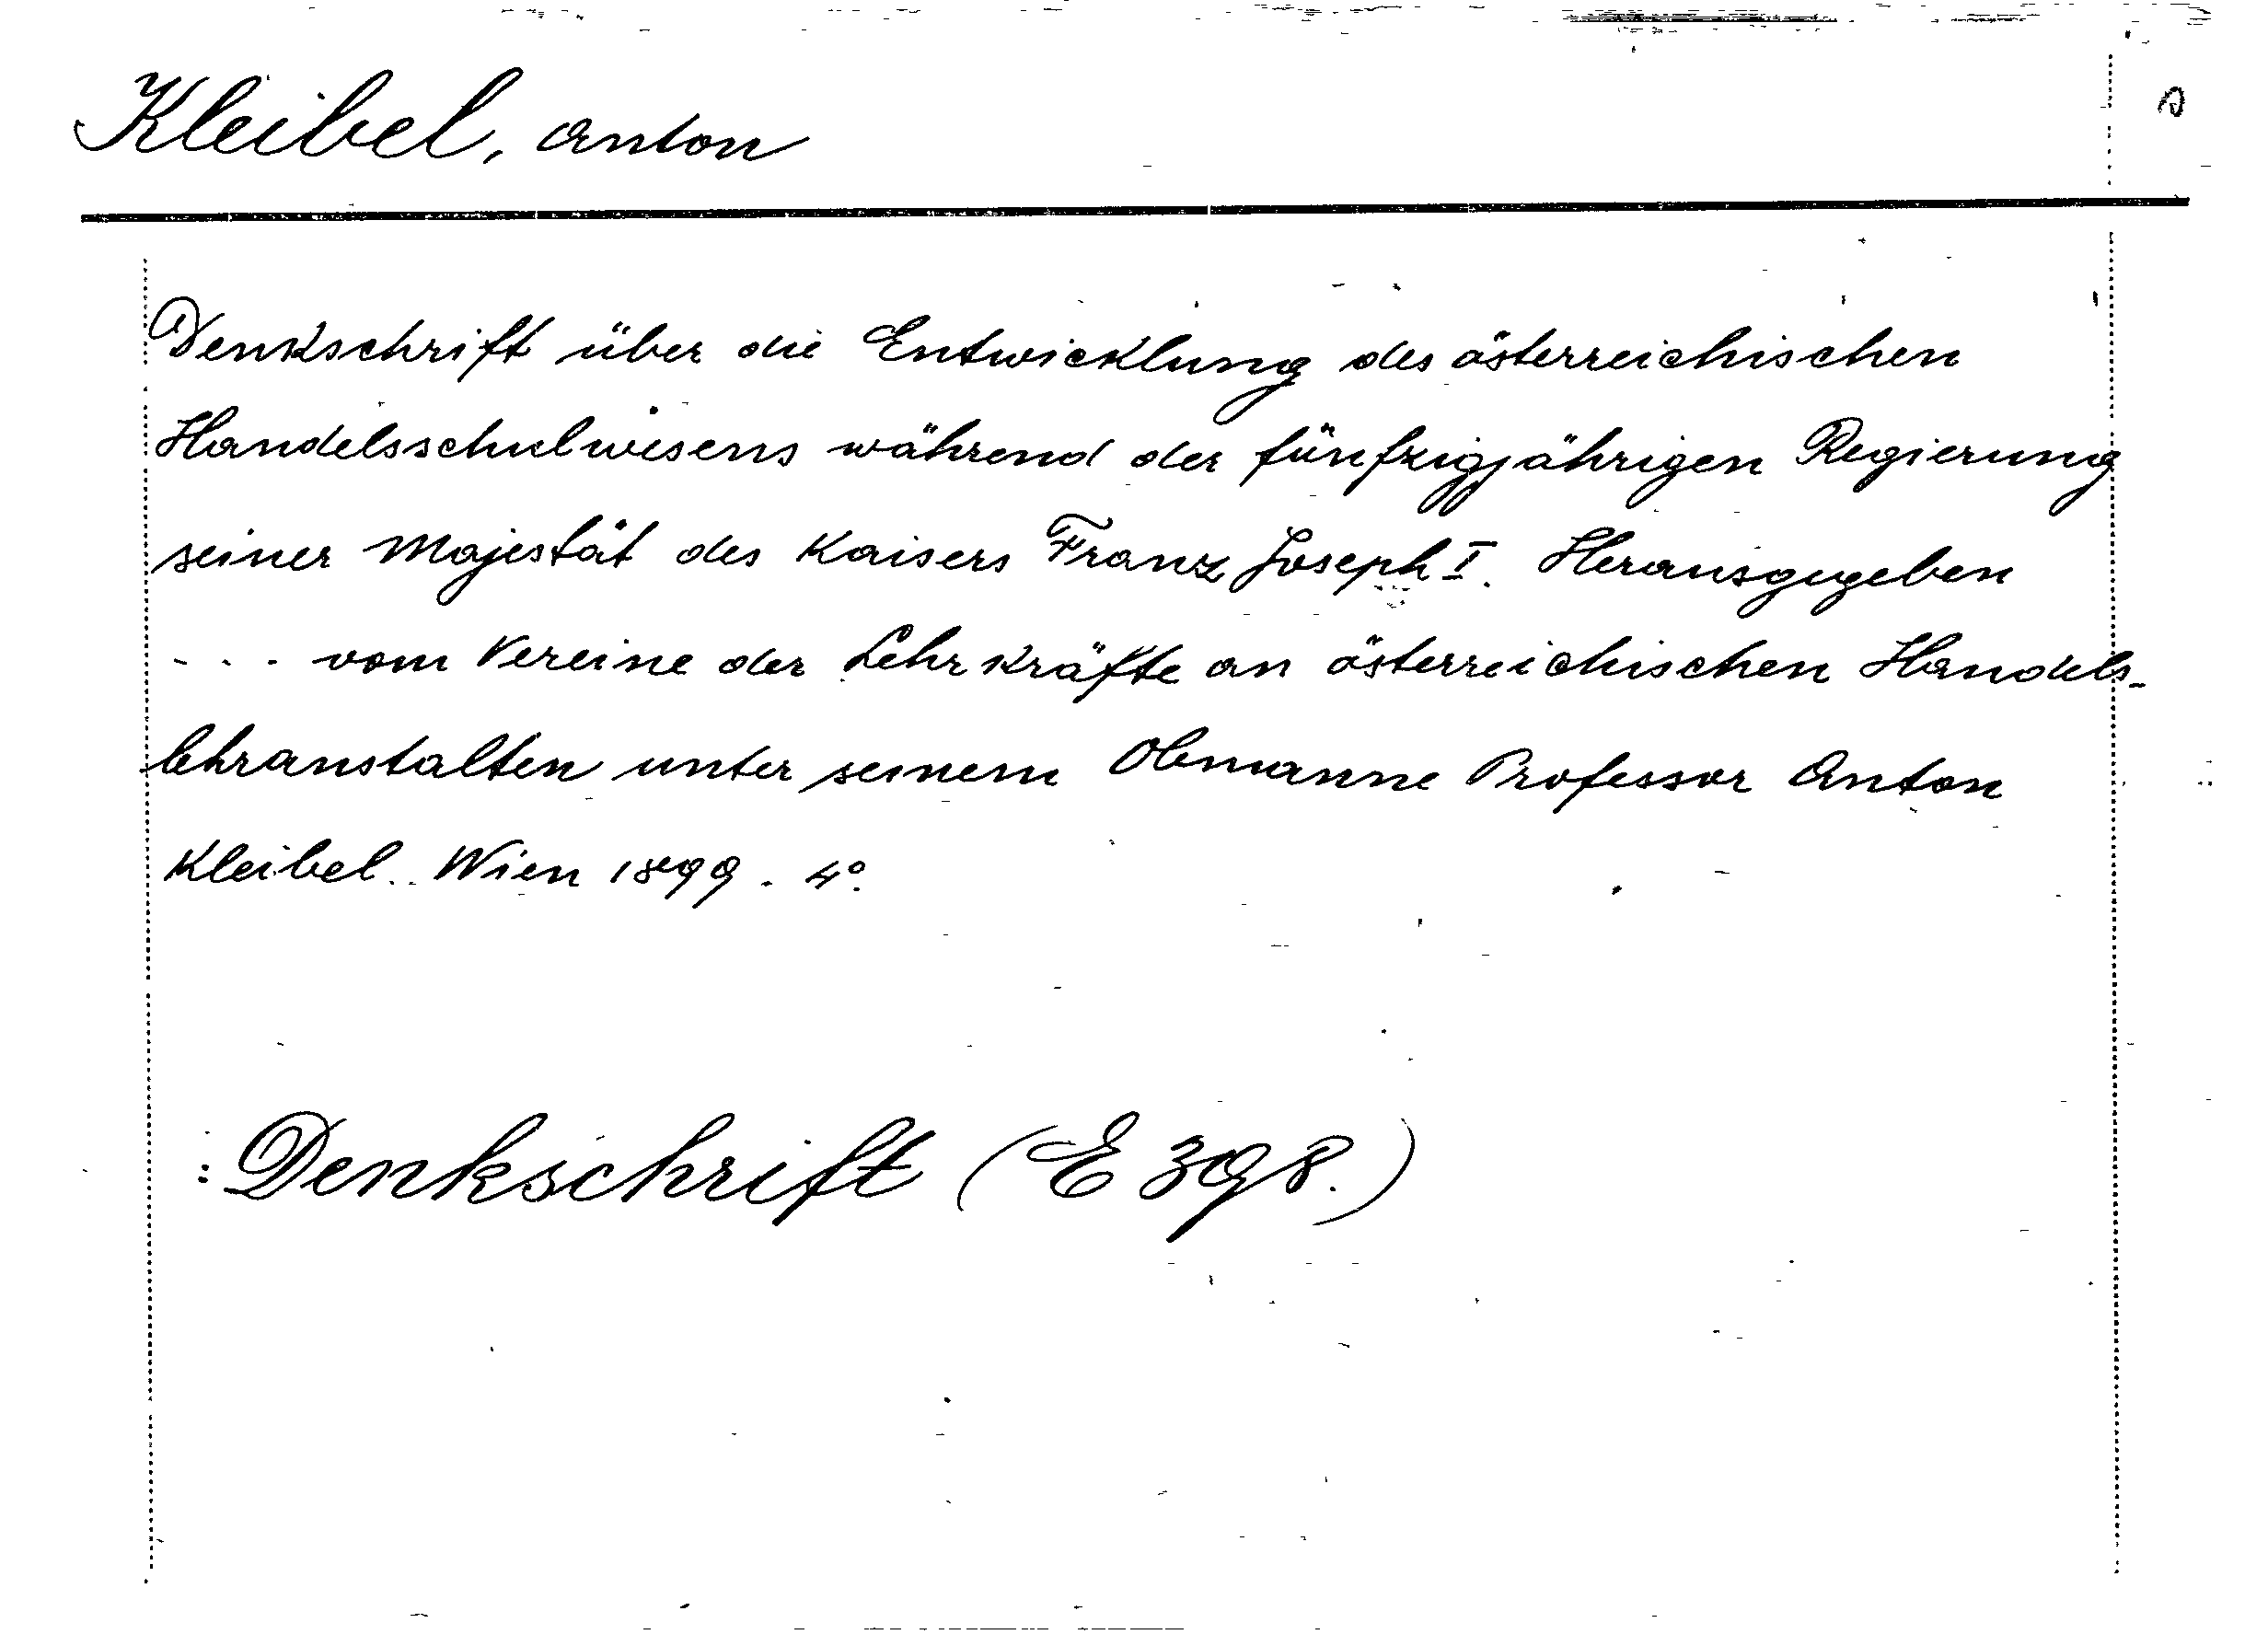 Kleibel, Anton
Denkschrift über die Entwicklung des österreichischen
Handelsschulwesens während der fünfzigjährigen Regierung
seiner Majestät des Kaisers Franz Joseph I. Herausgegeben
... vom Vereine der Lehrkräfte an österreichischen Handels-
lehranstalten unter seinem Obmanne Professor Anton
Kleibel. Wien 1899. 4°.
: Denkschrift (E 398.)